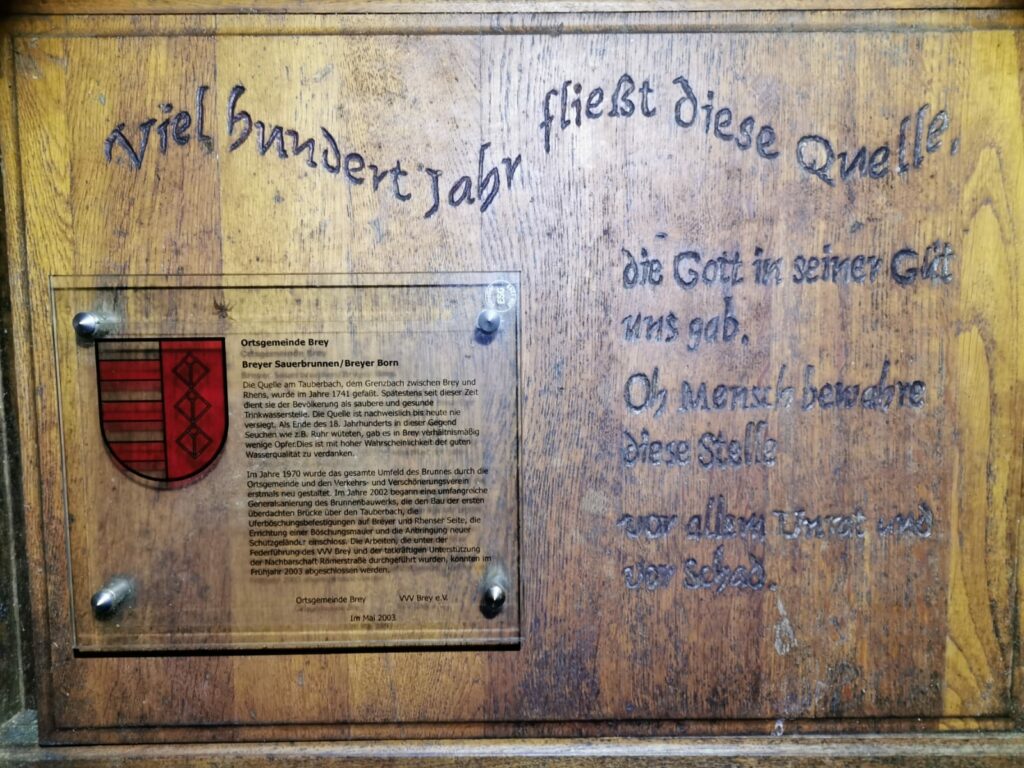 Viel hundert Jahr fließt diese Quelle,
die Gott in seiner Güt
uns gab.
Oh Mensch bewahre
diese Stelle
vor allem Unrat und
vor Schad.
Ortsgemeinde Brey
Breyer Sauerbrunnen/Breyer Born
Die Quelle am Tauberbach, dem Grenzbach zwischen Brey und
Rhens, wurde im Jahre 1741 gefaßt. Spätestens seit dieser Zeit
dient sie der Bevölkerung als saubere und gesunde
Trinkwasserstelle. Die Quelle ist nachweislich bis heute nie
versiegt. Als Ende des 18. Jahrhunderts in dieser Gegend
Seuchen wie z.B. Ruhr wüteten, gab es in Brey verhältnismäßig
wenige Opfer.Dies ist mit hoher Wahrscheinlichkeit der guten
Wasserqualität zu verdanken.
Im Jahre 1970 wurde das gesamte Umfeld des Brunnes durch die
Ortsgemeinde und den Verkehrs- und Verschönerungsverein
erstmals neu gestaltet. Im Jahre 2002 begann eine umfangreiche
Generalsanierung des Brunnenbauwerks, die den Bau der ersten
überdachten Brücke über den Tauberbach, die
Uferböschungsbefestigungen auf Breyer und Rhenser Seite, die
Errichtung einer Böschungsmauer und die Anbringung neuer
Schutzgeländer einschloss. Die Arbeiten, die unter der
Federführung des VVV Brey und der tatkräftigen Unterstützung
der Nachbarschaft Römerstraße durchgeführt wurden, konnten im
Frühjahr 2003 abgeschlossen werden.
Ortsgemeinde Brey VVV Brey e.V.
Im Mai 2003
ESG